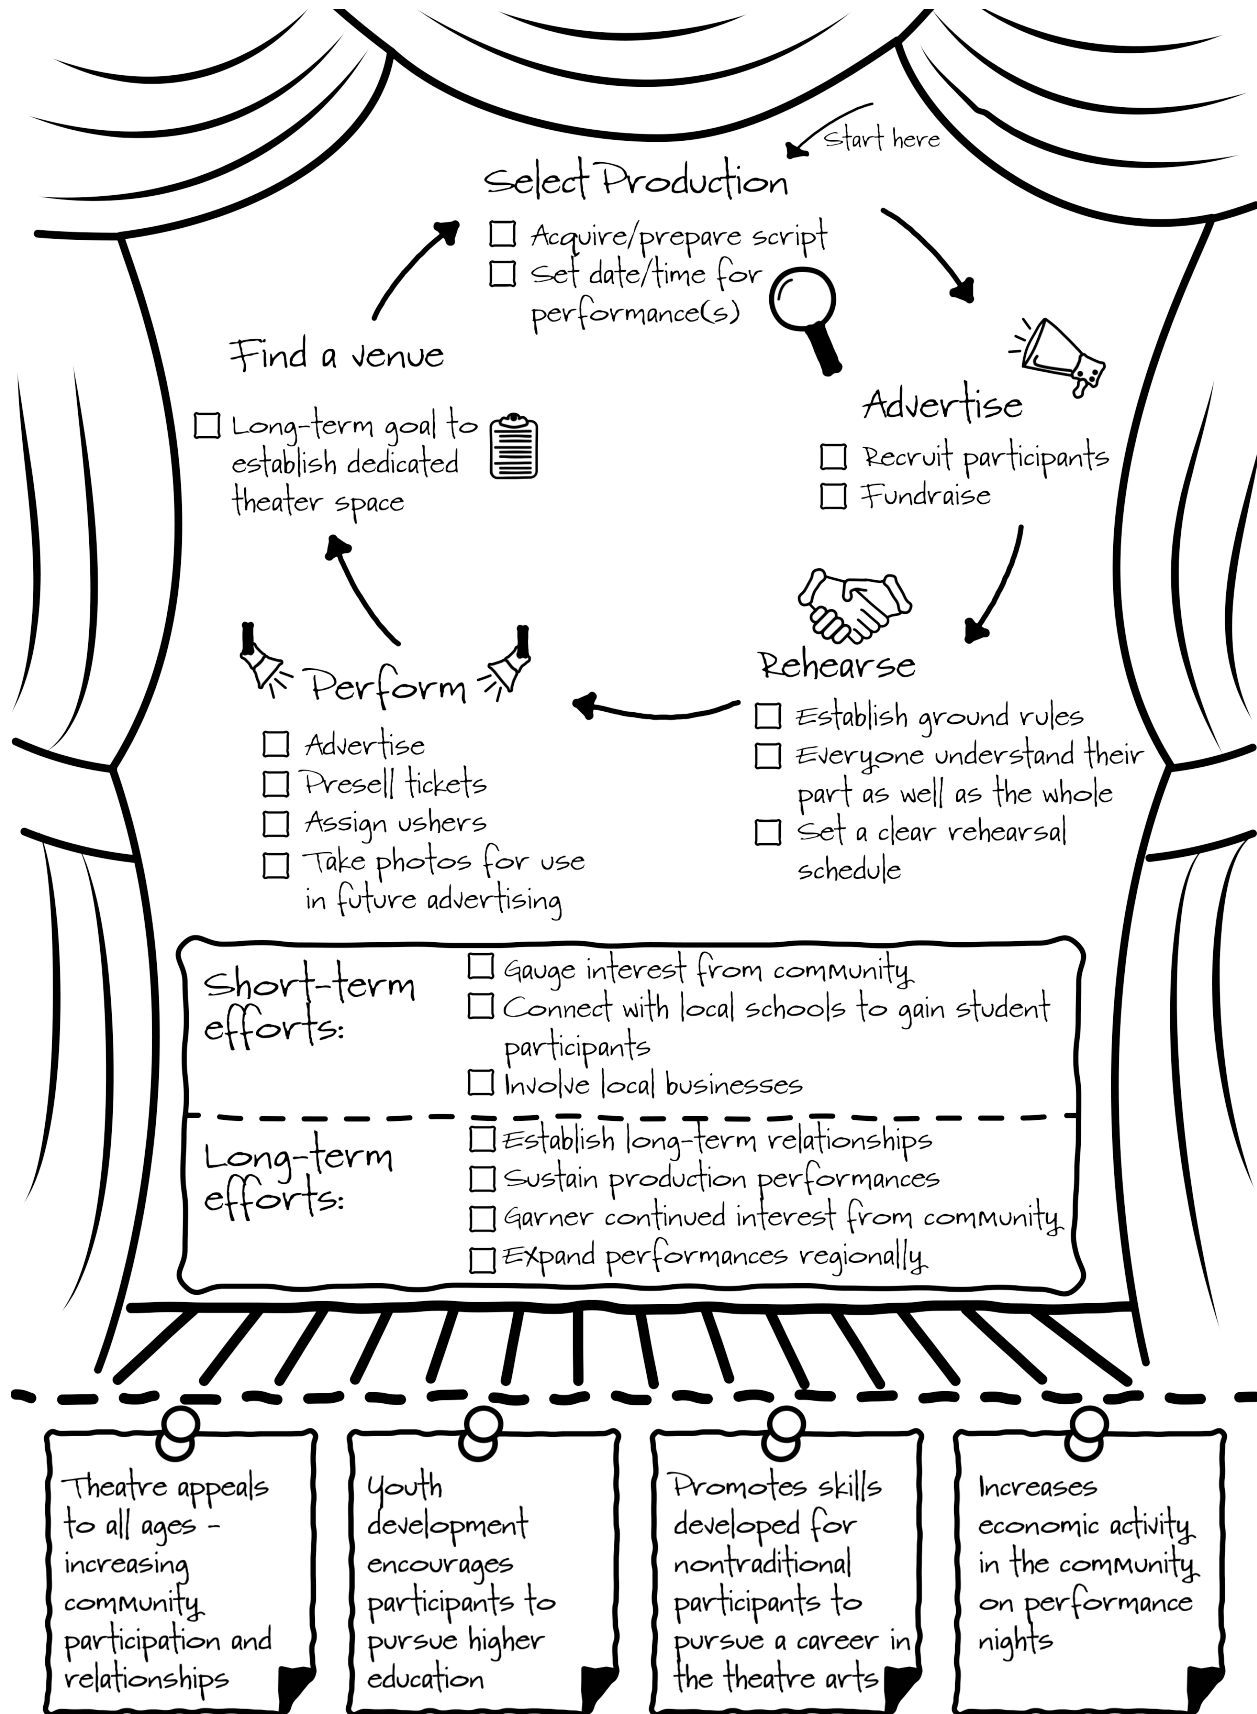 Start here
Select Production
Acquire/prepare script
Set date/time for
performance(s)
Advertise
Recruit participants
Fundraise
Rehearse
Establish ground rules
Everyone understand their
part as well as the whole
Set a clear rehearsal
schedule
Perform
Advertise
Presell tickets
Assign ushers
Take photos for use
in future advertising
Find a venue
Long-term goal to
establish dedicated
theater space
Short-term
efforts:
Gauge interest from community
Connect with local schools to gain student
participants
Involve local businesses
Long-term
efforts:
Establish long-term relationships
Sustain production performances
Garner continued interest from community
Expand performances regionally
Theatre appeals
to all ages -
increasing
community
participation and
relationships
Youth
development
encourages
participants to
pursue higher
education
Promotes skills
developed for
nontraditional
participants to
pursue a career in
the theatre arts
Increases
economic activity
in the community
on performance
nights